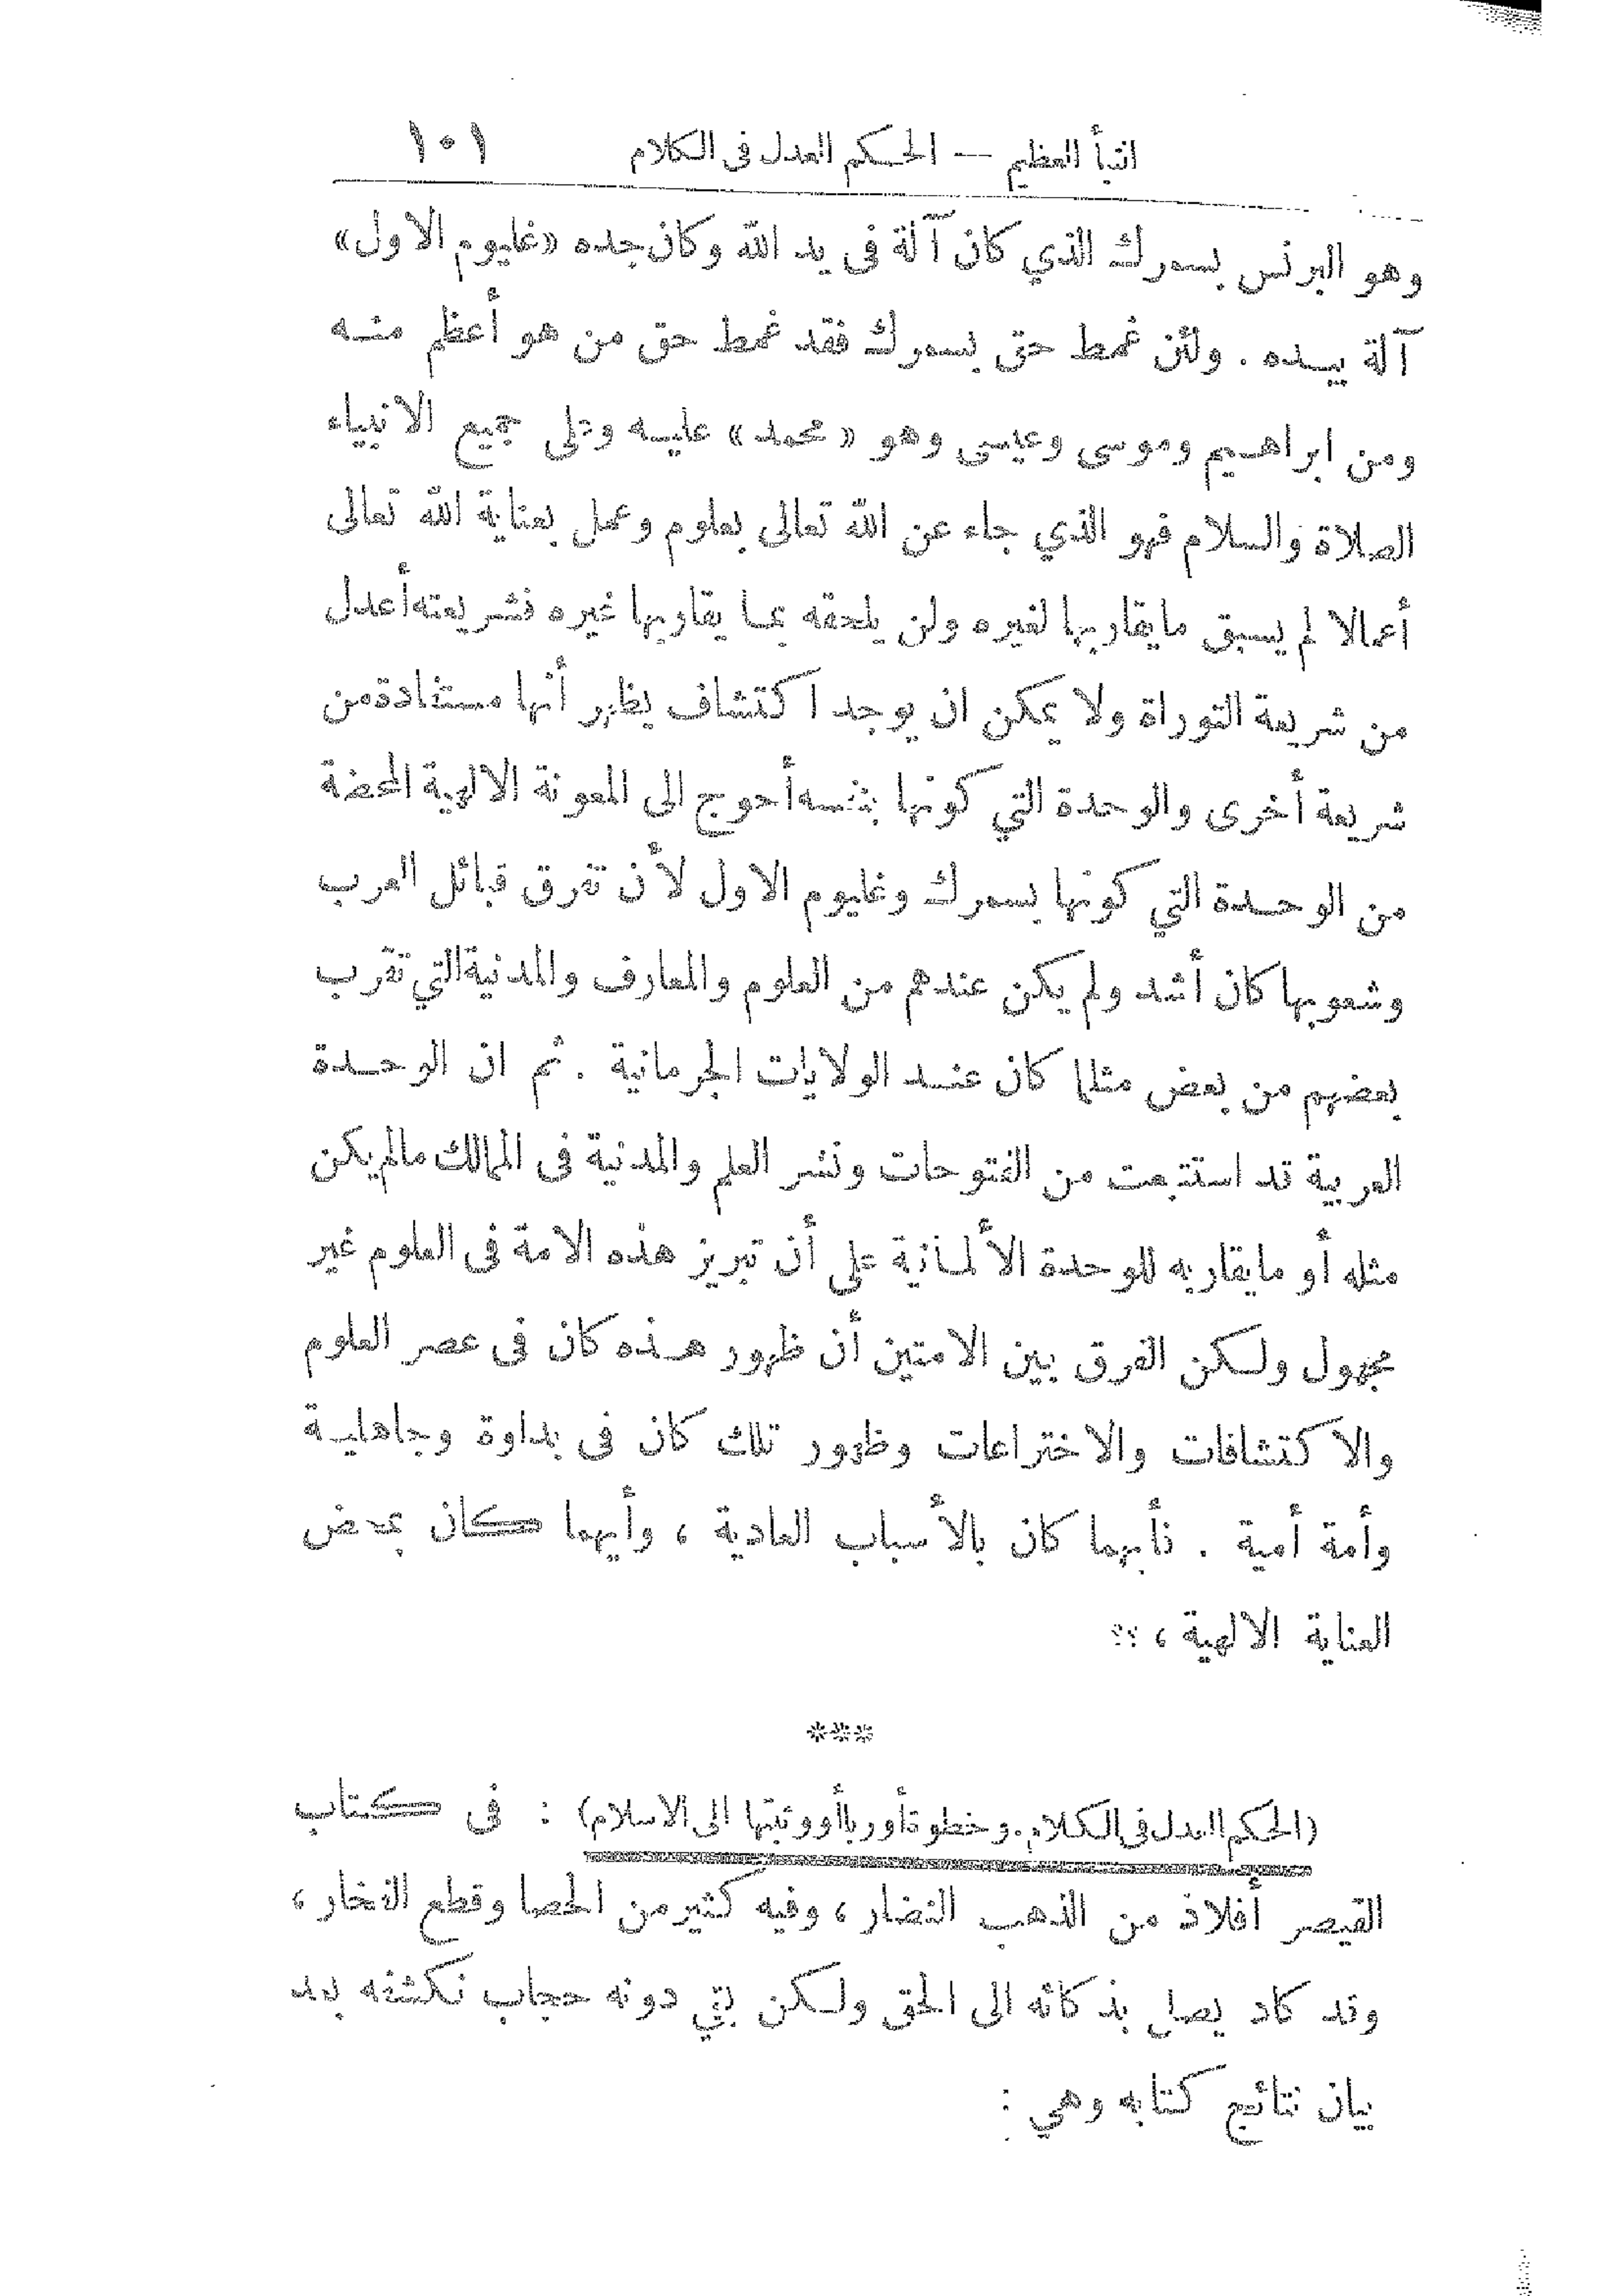 النبأ العظيم — الحكم العدل فى الكلام ١٠١
وهو البرنس بسمرك الذي كان آلة فى يد الله وكان جده «غليوم الاول»
آلة بيده . ولئن غمط حق بسمرك فقد غمط حق من هو أعظم منه
ومن ابراهيم وموسى وعيسى وهو « محمد » عليه وعلى جميع الانبياء
الصلاة والسلام فهو الذي جاء عن الله تعالى بعلوم وعمل بعناية الله تعالى
أعمالا لم يسبق مايقاربها لغيره ولن يلحقه بما يقاربها غيره فشريعته أعدل
من شريعة التوراة ولا يمكن ان يوجد اكتشاف يظهر أنها مستفادة من
شريعة أخرى والوحدة التي كونها بنفسه أحوج الى المعونة الالهية المحضة
من الوحدة التي كونها بسمرك وغليوم الاول لأن تفرق قبائل العرب
وشعوبها كان أشد ولم يكن عندهم من العلوم والمعارف والمدنية التي تقرب
بعضهم من بعض مثلما كان عند الولايات الجرمانية . ثم ان الوحدة
العربية قد استتبعت من الفتوحات ونشر العلم والمدنية فى الممالك مالم يكن
مثله أو مايقاربه للوحدة الألمانية على أن تبريز هذه الامة فى العلوم غير
مجهول ولكن الفرق بين الامتين أن ظهور هذه كان فى عصر العلوم
والاكتشافات والاختراعات وظهور تلك كان فى بداوة وجاهلية
وأمة أمية . فأيهما كان بالأسباب العادية ، وأيهما كان بمحض
العناية الالهية ، ؟؟
***
(الحكم العدل فى الكلام . وخطوة أوربا أو وثبتها الى الاسلام) : فى كتاب
القيصر أفلاذ من الذهب النضار ، وفيه كثير من الحصا وقطع الفخار ،
وقد كاد يصل بذكائه الى الحق ولكن بقي دونه حجاب نكشفه بعد
بيان نتائج كتابه وهي :